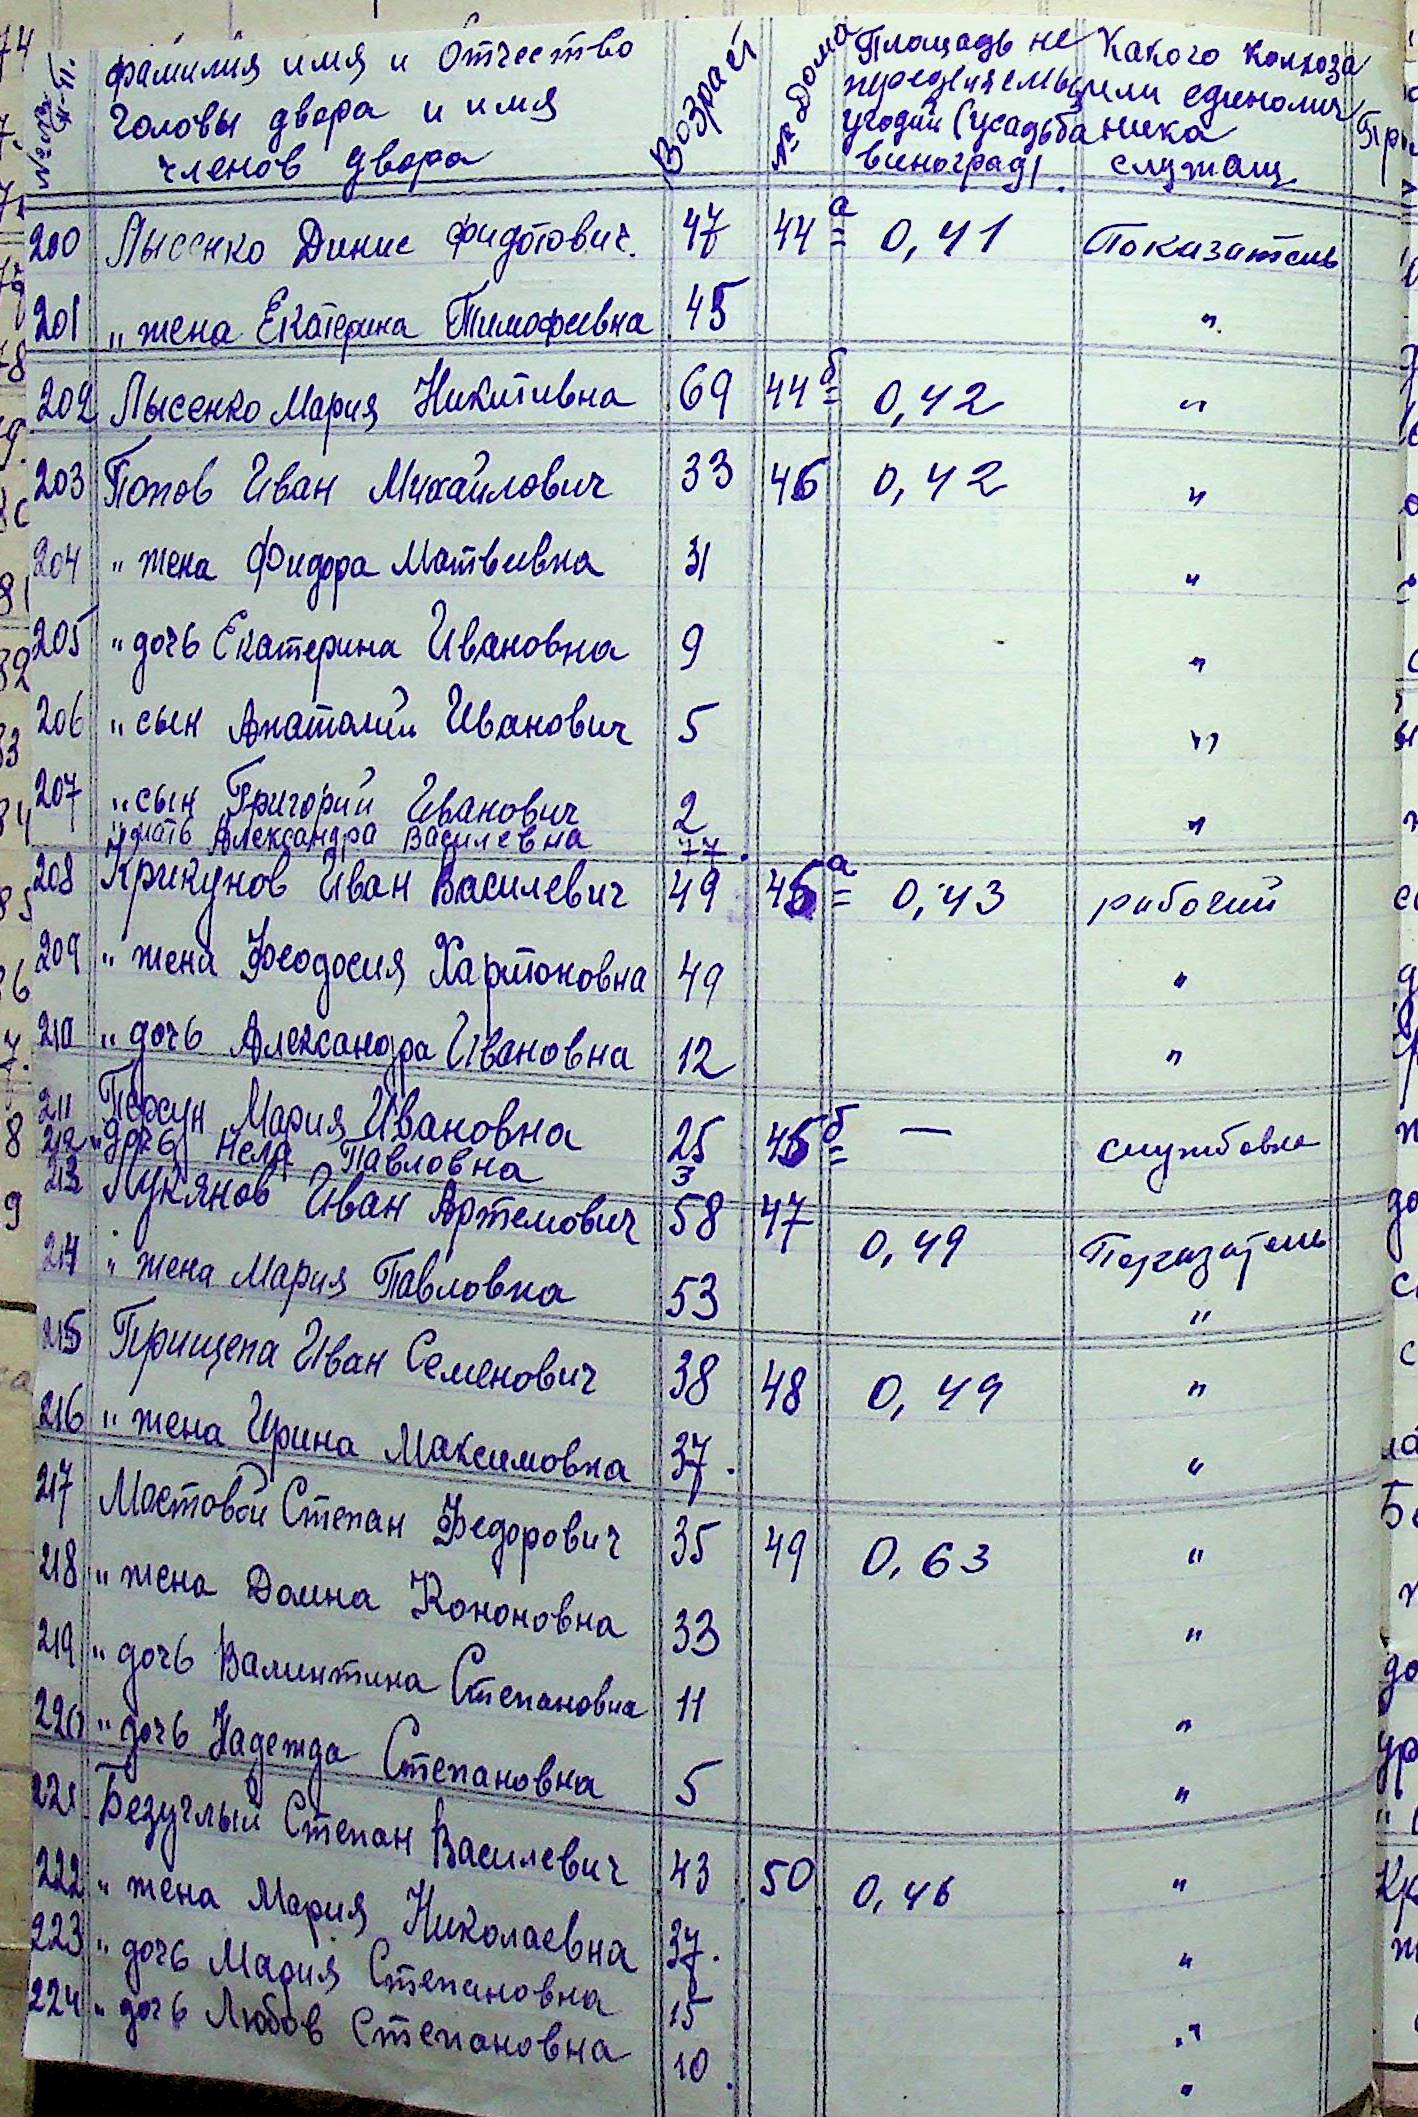 фамилия имя и Отчество Возраст № Дома Площадь не Какого колхоза
головы двора и имя или единолич
членов двора угодий (усадьба ника
виноград) служащ
200 Лысенко Динис Фидотович. 47 44 а 0,41 Показатель
201 „ жена Екатерина Тимофеевна 45 "
202 Лысенко Мария Никитивна 69 44 б 0,42 "
203 Попов Иван Михайлович 33 46 0,42 "
204 „ жена Фидора Матвеевна 31 "
205 „ дочь Екатерина Ивановна 9 "
206 „ сын Анатолий Иванович 5 "
207 „ сын Григорий Иванович 2 "
мать Александра Василевна 77.
208 Крикунов Иван Василевич 49 46 а 0,43 рабочий
209 „ жена Феодосия Харитоновна 49 "
210 „ дочь Александра Ивановна 12 "
211 Мария Ивановна 25 46 б — службовка
212 „ дочь Нела Павловна 3
213 Лукянов Иван Артемович 58 47 0,49 Показатель
214 „ жена Мария Павловна 53 "
215 Прищепа Иван Семенович 38 48 0,49 "
216 „ жена Ирина Максимовна 37. "
217 Мостовой Степан Федорович 35 49 0,63 "
218 „ жена Домна Кононовна 33 "
219 „ дочь Валинтина Степановна 11 "
220 „ дочь Надежда Степановна 5 "
221 Безуглый Степан Василевич 43 50 0,46 "
222 „ жена Мария Николаевна 37. "
223 „ дочь Мария Степановна 15 "
224 „ дочь Любов Степановна 10. "